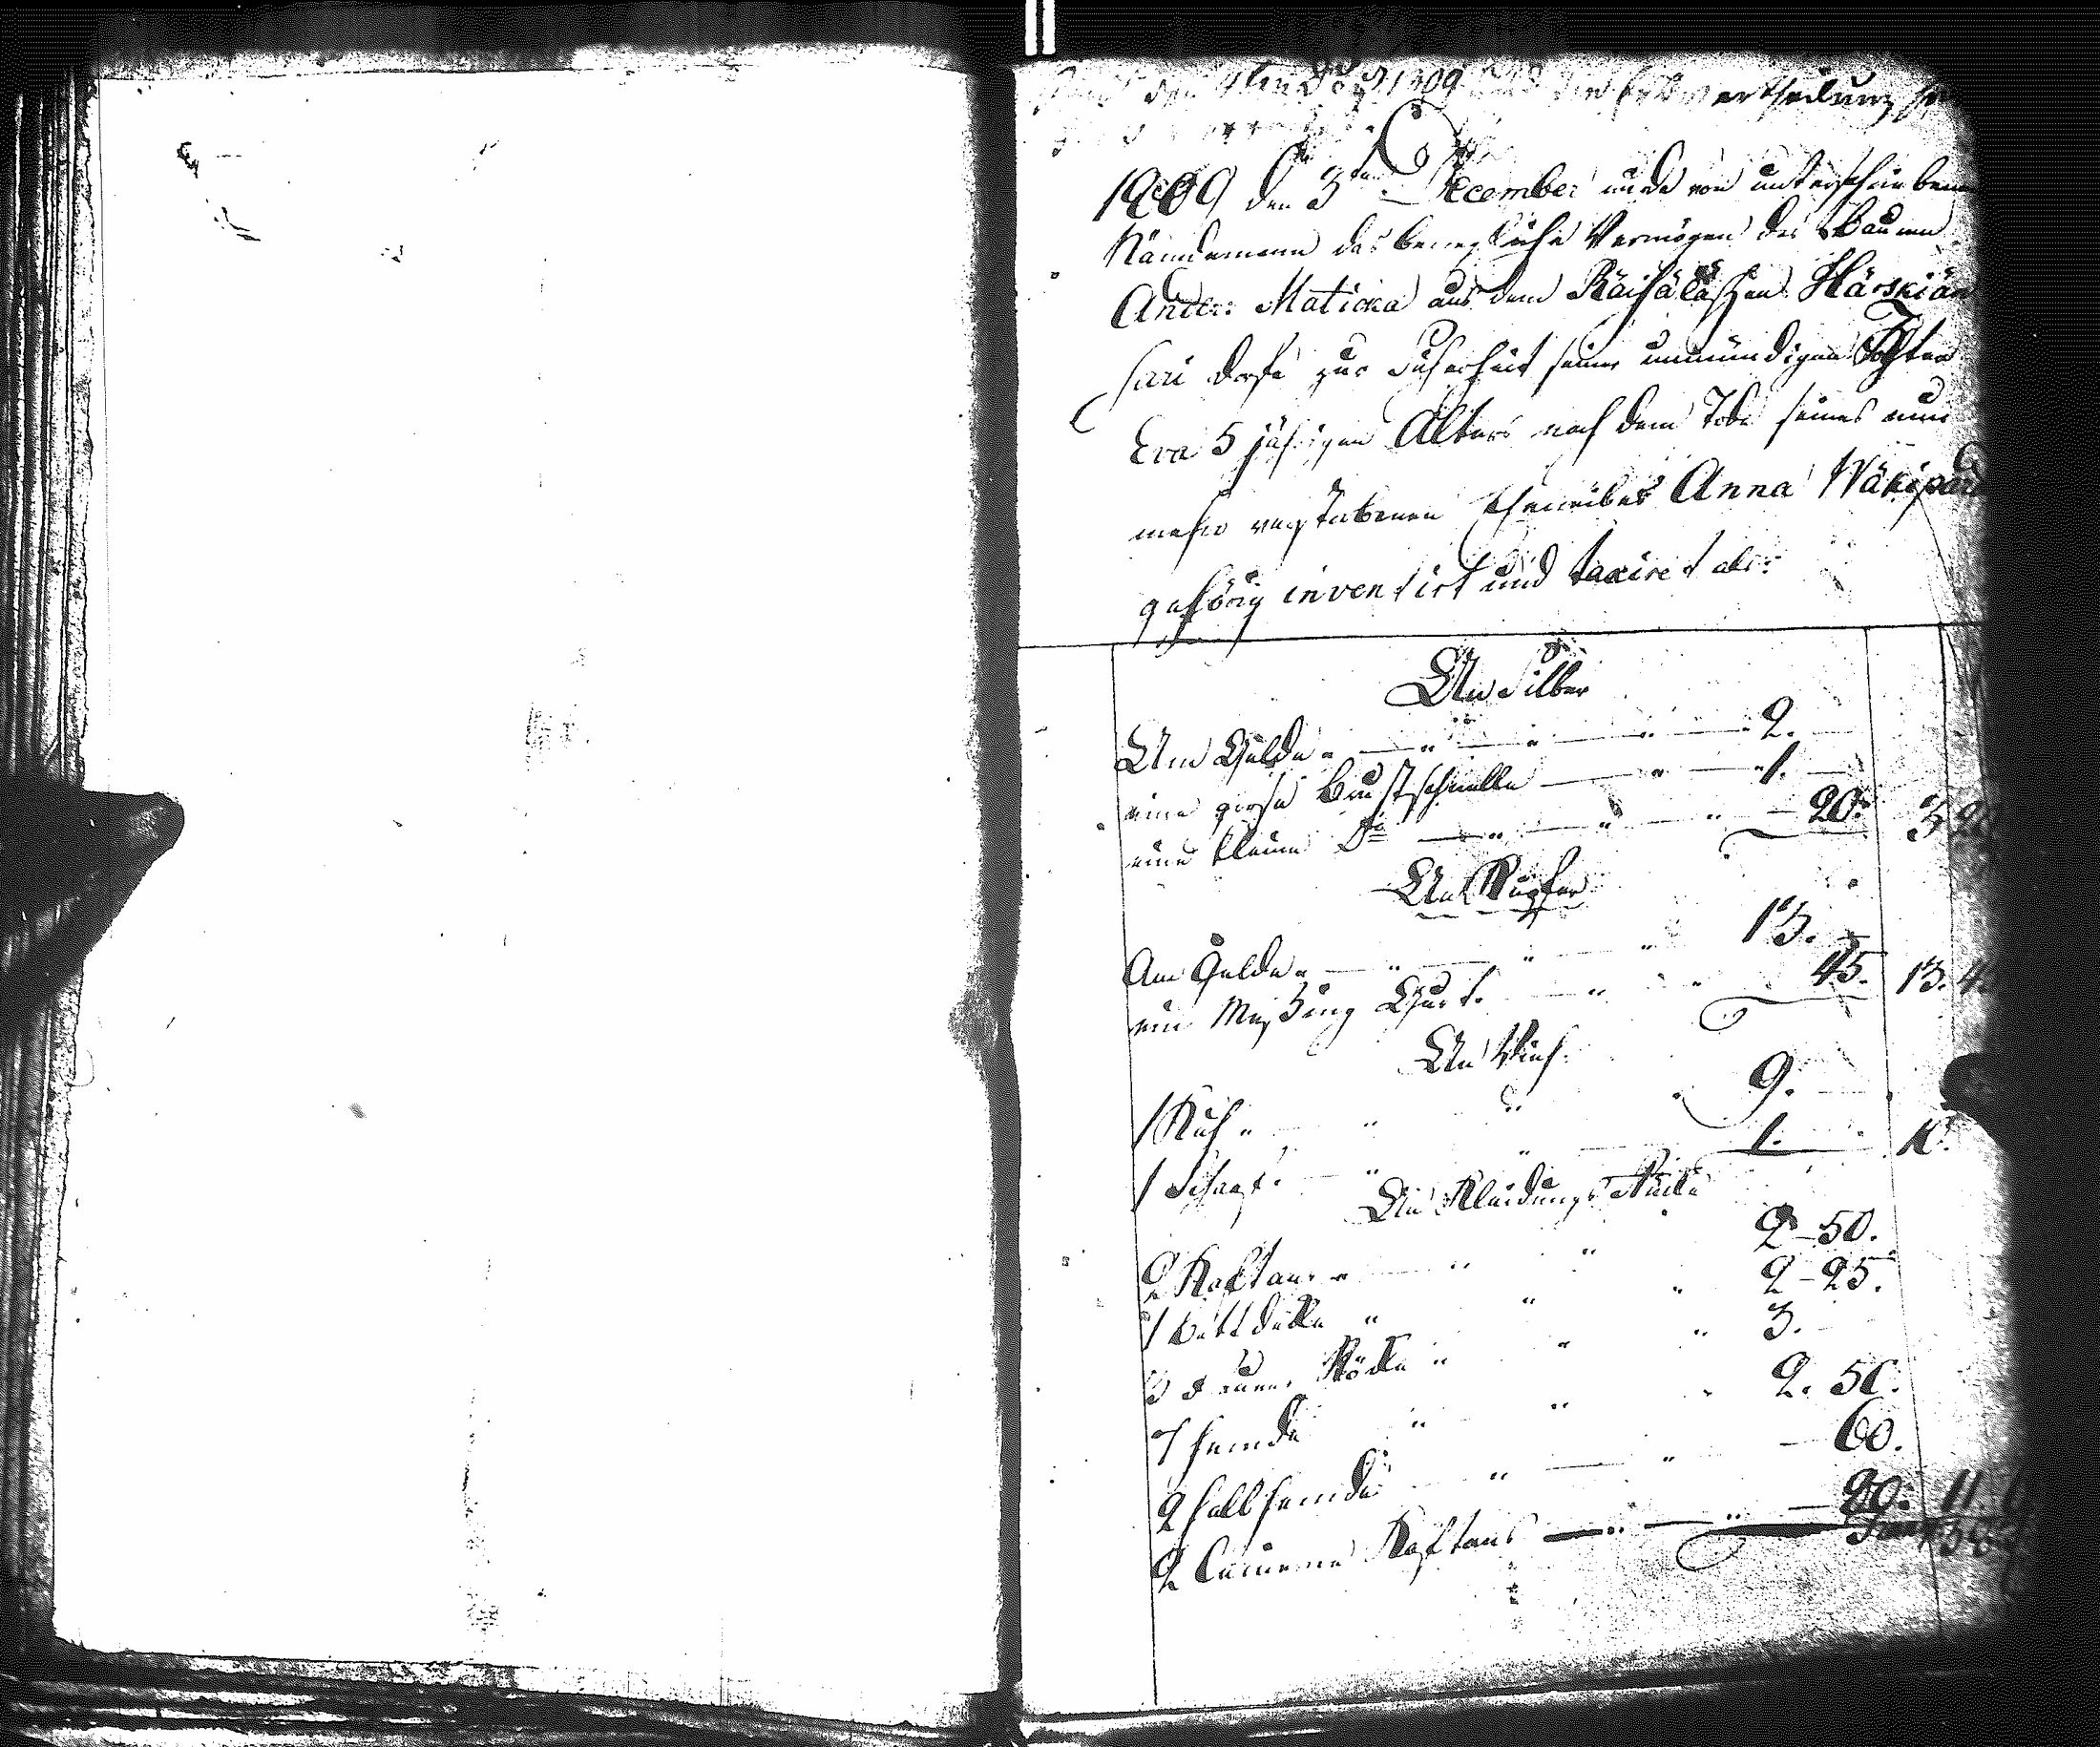 den 9ten Dec 1809 vertheilung
1809 den 3ten December wurde von unterschriebenen
Nämdemann das bewegliche Vermögen des Bauern
Anders Maticka aus dem Räisäläschen Härskiän
sari dorfe zur Sicherheit seiner unmündigen Tochter
Eva 5 jährigen Alters nach dem Tode seines nun
mehr verstorbenen Eheweibes Anna Wäkipar
gehörig inventirt und taxiret als:
An Silber
An Gelde 2.
eine grosse Brustschnalle 1.
eine kleine Do 20. 3 20
An Kupfer
An Gelde 13.
ein Meßing Gurt 45. 13. 4
An Vieh
1 Kuh 9.
1 Schaaf 1. 10.
An Kleidungs Stücke
2 Kaftans 2 50.
1 bettdecke 2 25.
3 Röcke 3.
7 hemde 2. 50.
2 halbhemde 60.
2 Kaftans 11.